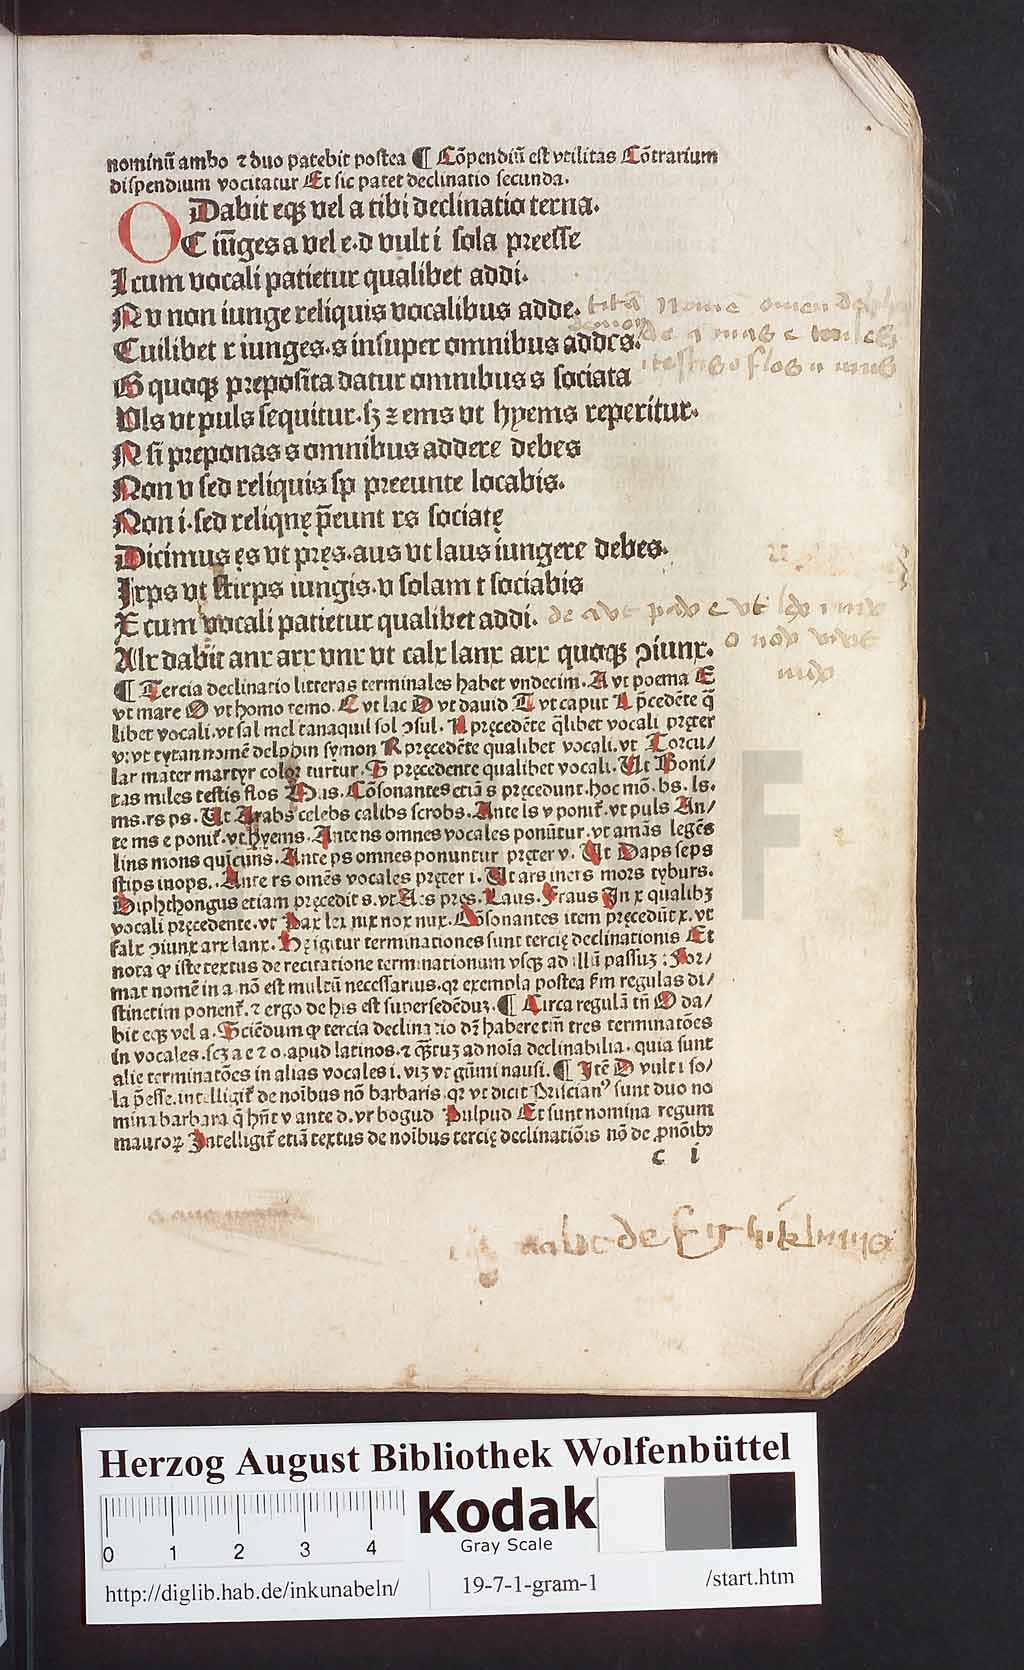 nominū ambo ⁊ duo patebit postea ¶ Cōpendiū est vtilitas Cōtrarium
dispendium vocitatur Et sic patet declinatio secunda.
O Dabit eqꝫ vel a tibi declinatio terna.
C iūges a vel e. d vult i sola preesse
I cum vocali patietur qualibet addi.
N v non iunge reliquis vocalibus adde. titā nomē omen delphin
Cuilibet r iunges. s insuper omnibus addes.
B quoqꝫ preposita datur omnibus s sociata
Uls vt puls sequitur. sꝫ ⁊ ems vt hyems reperitur.
N si preponas s omnibus addere debes
Non v sed reliquis sp preeunte locabis.
Non i. sed reliquę p̄eunt rs sociatę
Dicimus ęs vt pręs. aus vt laus iungere debes.
Irps vt stirps iungis. v solam t sociabis
X cum vocali patietur qualibet addi.
Alx dabit anx arx vnx vt calx lanx arx quoqꝫ ↄiunx.
¶ Tercia declinatio litteras terminales habet vndecim. A vt poema E
vt mare O vt homo temo. C vt lac D vt dauid T vt caput L p̄cedēte q̄
libet vocali. vt sal mel tanaquil sol ↄsul. N precedēte q̄libet vocali pręter
v: vt tytan nomē delphin symon R pręcedēte qualibet vocali. vt Torcu/
lar mater martyr color turtur. S precedente qualibet vocali. Ut Boni/
tas miles testis flos Mus. Cōsonantes etiā s pręcedunt. hoc mō. bs. ls.
ms. rs ps. Ut Arabs celebs calibs scrobs. Ante ls v ponit̄. vt puls An/
te ms e ponit̄. vt hyems. Ante ns omnes vocales ponūtur. vt amās legēs
lins mons quīcuns. Ante ps omnes ponuntur pręter v. Ut Daps seps
stips inops. Ante rs omēs vocales pręter i. Ut ars iners mors tyburs.
Diphthongus etiam pręcedit s. vt Aes pręs. Laus. Fraus In x qualibꝫ
vocali pręcedente. vt Pax lex nix nox nux. Cōsonantes item pręcedūt x. vt
falx ↄiunx arx lanx. Hę igitur terminationes sunt tercię declinationis Et
nota ꝙ iste textus de recitatione terminationum vsqꝫ ad illū passuꝫ: For/
mat nomē in a nō est multū necessarius. qꝛ exempla postea s̄m regulas di/
stinctim ponent̄. ⁊ ergo de his est supersedēduꝫ. ¶ Circa regulā tn̄ O da/
bit eqꝫ vel a. Sciēdum ꝙ tercia declinatio dꝫ habere tm̄ tres terminatōes
in vocales. scꝫ a e ⁊ o. apud latinos. ⁊ q̄ꝫtuꝫ ad noīa declinabilia. quia sunt
alie terminatōes in alias vocales i. viꝫ vt gūmi nausi. ¶ Itē D vult i so/
la p̄esse. intelligit̄ de noībus nō barbaris qꝛ vt dicit Priscianꝰ sunt duo no
mina barbara q̄ hn̄t v ante d. vt bogud Pulpud Et sunt nomina regum
mauroꝝ Intelligit̄ etiā textus de noībus tercię declinatiōis nō de ꝓnoībꝫ
c i
Herzog August Bibliothek Wolfenbüttel
0 1 2 3 4
Kodak
Gray Scale
http://diglib.hab.de/inkunabeln/ 19-7-1-gram-1 /start.htm